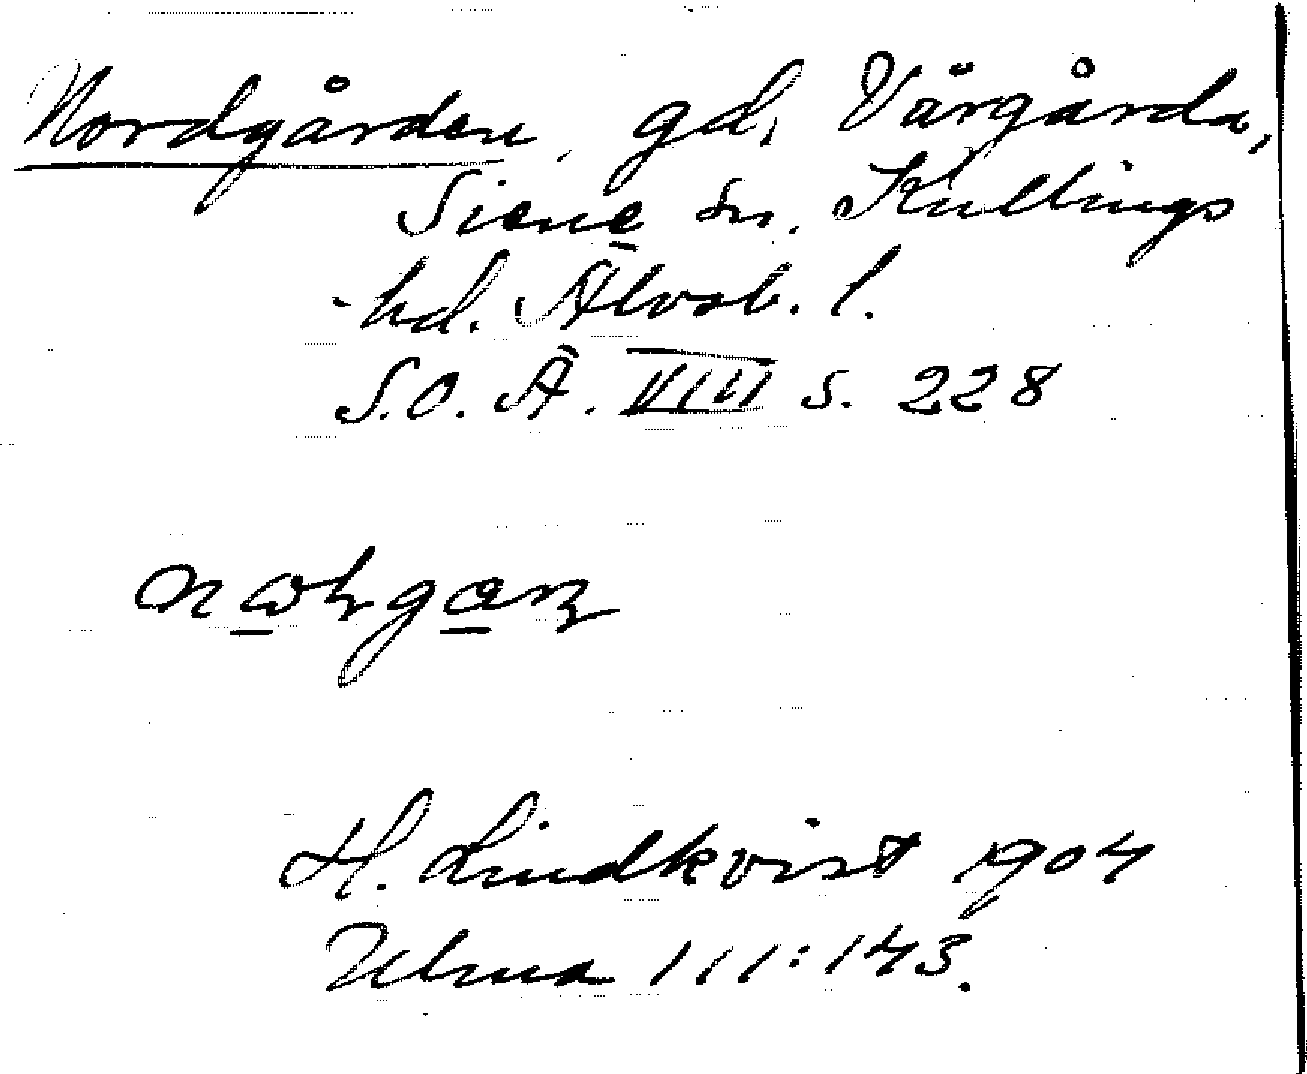 Nordgården, gd, Vårgårda,
Siene sn. Kullings
hd. Älvsb. l.
S.O.Ä. VIII s. 228
H. Lindkvist 1904
Ulma 111:143.